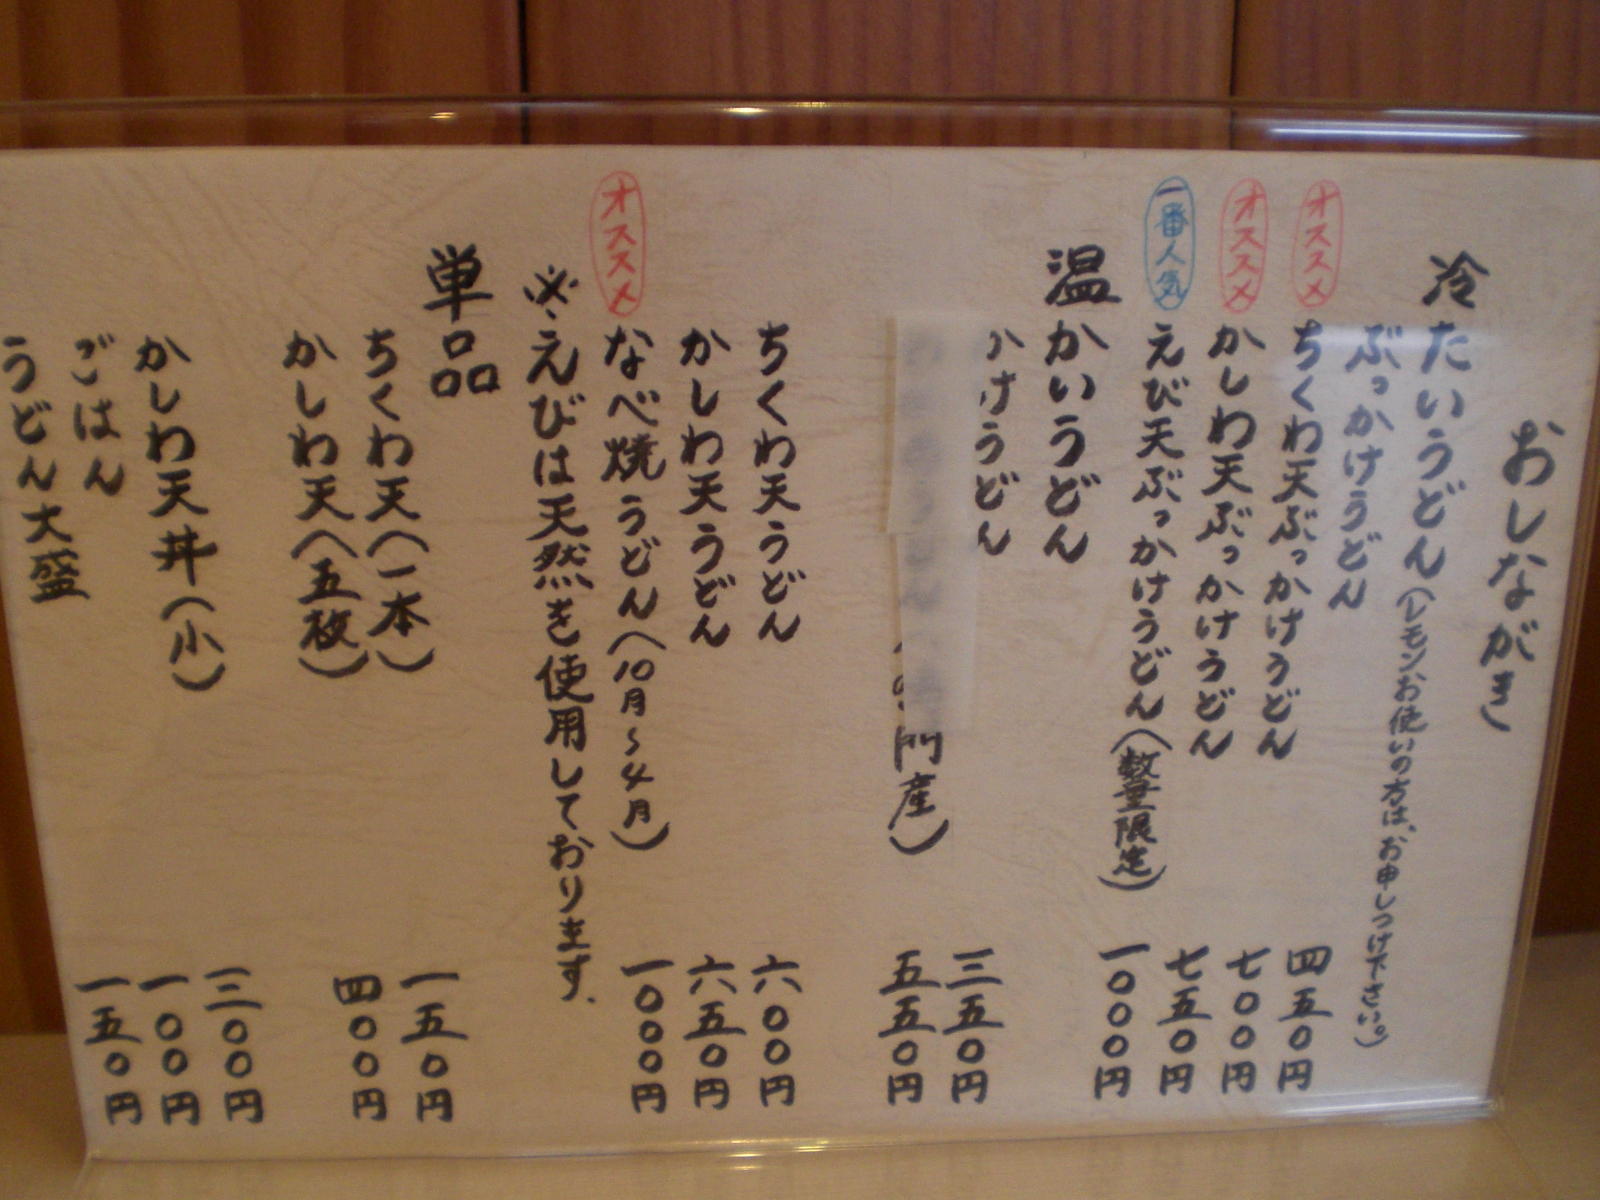 おしながき
冷たいうどん(レモンお使いの方は、お申しつけ下さい。)
ぶっかけうどん 四五〇円
オススメ ちくわ天ぶっかけうどん 七〇〇円
オススメ かしわ天ぶっかけうどん 七五〇円
一番人気 えび天ぶっかけうどん(数量限定) 一〇〇〇円
温かいうどん
かけうどん 三五〇円
門産) 五五〇円
ちくわ天うどん 六〇〇円
かしわ天うどん 六五〇円
オススメ なべ焼うどん(10月~4月) 一〇〇〇円
※えびは天然を使用しております。
単品
ちくわ天(一本) 一五〇円
かしわ天(五枚) 四〇〇円
かしわ天丼(小) 三〇〇円
ごはん 一〇〇円
うどん大盛 一五〇円